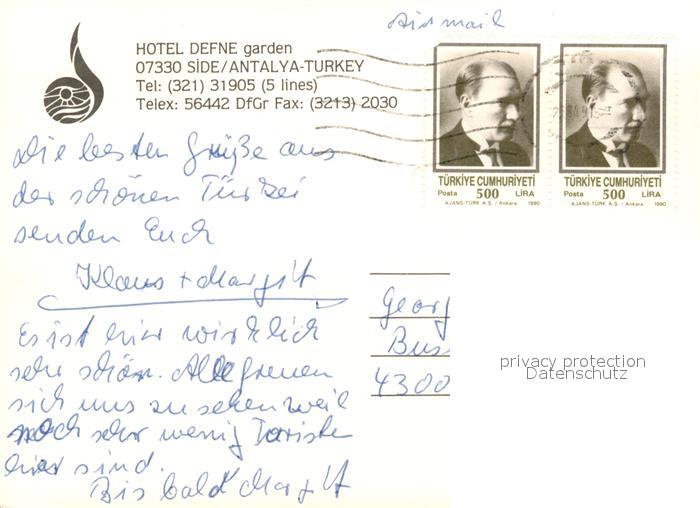 Airmail
HOTEL DEFNE garden
07330 SİDE/ANTALYA-TURKEY
Tel: (321) 31905 (5 lines)
Telex: 56442 DfGr Fax: (3213) 2030
TÜRKİYE CUMHURİYETİ
Posta 500 LİRA
AJANS-TÜRK A.Ş. / Ankara 1990
TÜRKİYE CUMHURİYETİ
Posta 500 LİRA
AJANS-TÜRK A.Ş. / Ankara 1990
Die besten Grüße aus
der schönen Türkei
senden Euch
Klaus + Margitt
Es ist hier wirklich
sehr schön. Alle freuen
sich uns zu sehen weil
noch sehr wenig Touristen
hier sind.
Bis bald Margitt
Georg
Bus
4300
privacy protection
Datenschutz